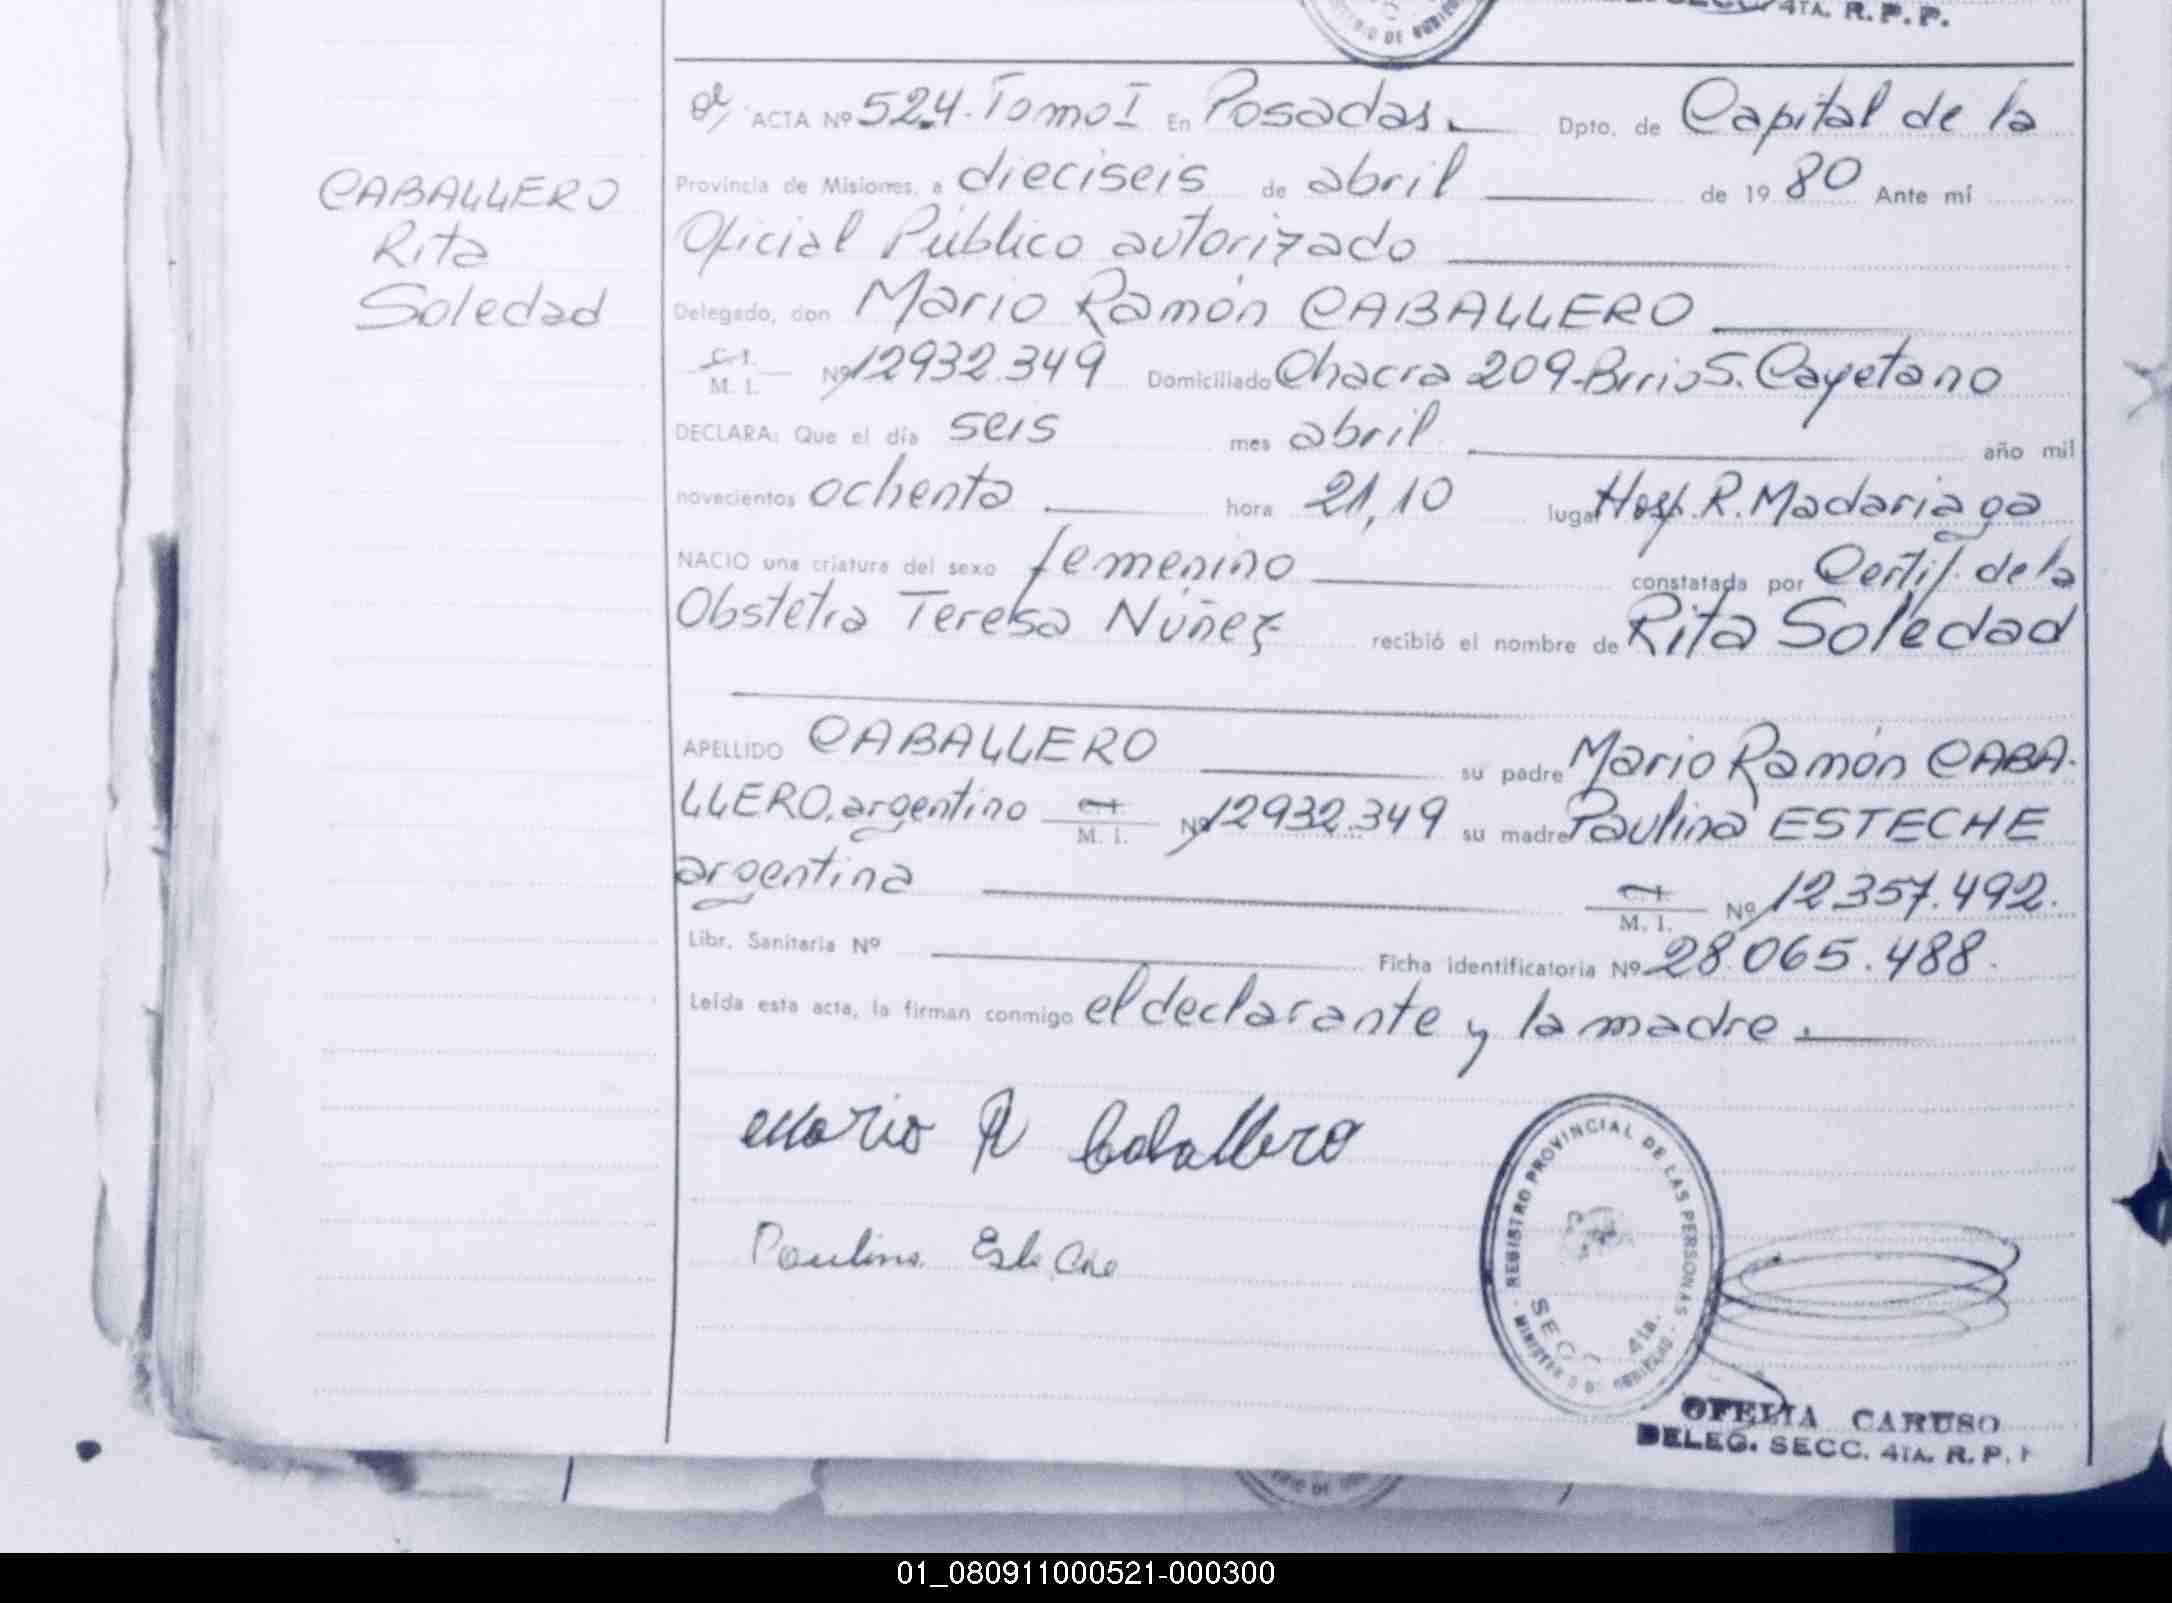 4TA. R.P.P.
ACTA Nº 524. Tomo I En Posadas. Dpto. de Capital de la
CABALLERO
Rita
Soledad
Provincia de Misiones, a dieciseis de abril de 19 80 Ante mí
Oficial Público autorizado
Delegado, don Mario Ramón CABALLERO
C. I.
M. I. Nº 12932.349 Domiciliado Chacra 209-Brrio S. Cayetano
DECLARA: Que el día seis mes abril año mil
novecientos ochenta hora 21,10 lugar Hosp. R. Madariaga
NACIO una criatura del sexo femenino constatada por Certif. de la
Obstetra Teresa Núñez recibió el nombre de Rita Soledad
APELLIDO CABALLERO su padre Mario Ramón CABA-
LLERO, argentino C. I. M. I. Nº 12932.349 su madre Paulina ESTECHE
argentina C. I. M. I. Nº 12.357.492.
Libr. Sanitaria Nº Ficha identificatoria Nº 28.065.488.
Leída esta acta, la firman conmigo el declarante y la madre.
Mario R Caballero
Paulina Esteche
REGISTRO PROVINCIAL DE LAS PERSONAS
SECC 4ta.
OFELIA CARUSO
DELEG. SECC. 4TA. R. P.
01_080911000521-000300